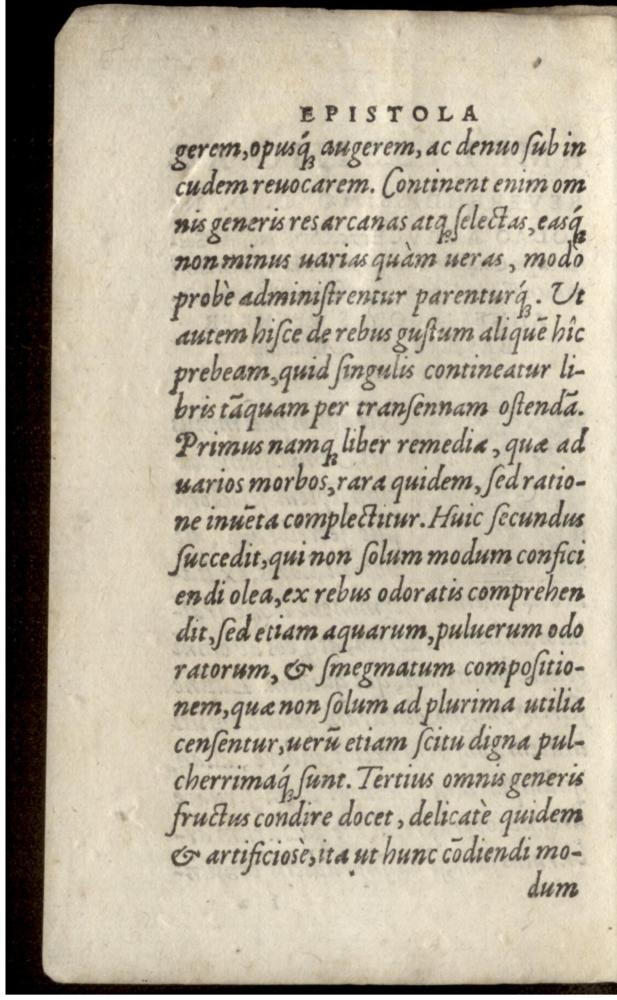 EPISTOLA
gerem, opusq́ꝫ augerem, ac denuo ſub in
cudem reuocarem. Continent enim om
nis generis res arcanas atqꝫ ſelectas, easq́ꝫ
non minus uarias quàm ueras, modò
probè adminiſtrentur parenturq́ꝫ. Ut
autem hiſce de rebus guſtum aliquē hîc
prebeam, quid ſingulis contineatur li-
bris tāquam per tranſennam oſtendā.
Primus namqꝫ liber remedia, quæ ad
uarios morbos, rara quidem, ſed ratio-
ne inuēta complectitur. Huic ſecundus
ſuccedit, qui non ſolum modum confici
endi olea, ex rebus odoratis comprehen
dit, ſed etiam aquarum, puluerum odo
ratorum, & ſmegmatum compoſitio-
nem, quæ non ſolum ad plurima utilia
cenſentur, uerū etiam ſcitu digna pul-
cherrimaq́ꝫ ſunt. Tertius omnis generis
fructus condire docet, delicatè quidem
& artificiosè, ita ut hunc cōdiendi mo-
dum